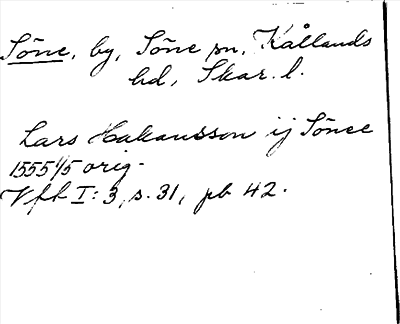 Söne, by, Söne sn, Kållands
hd, Skar. l.
Lars Hakansson ij Sönee
1555 1/5 orig.
Vfft I: 3, s. 31, pb 42.